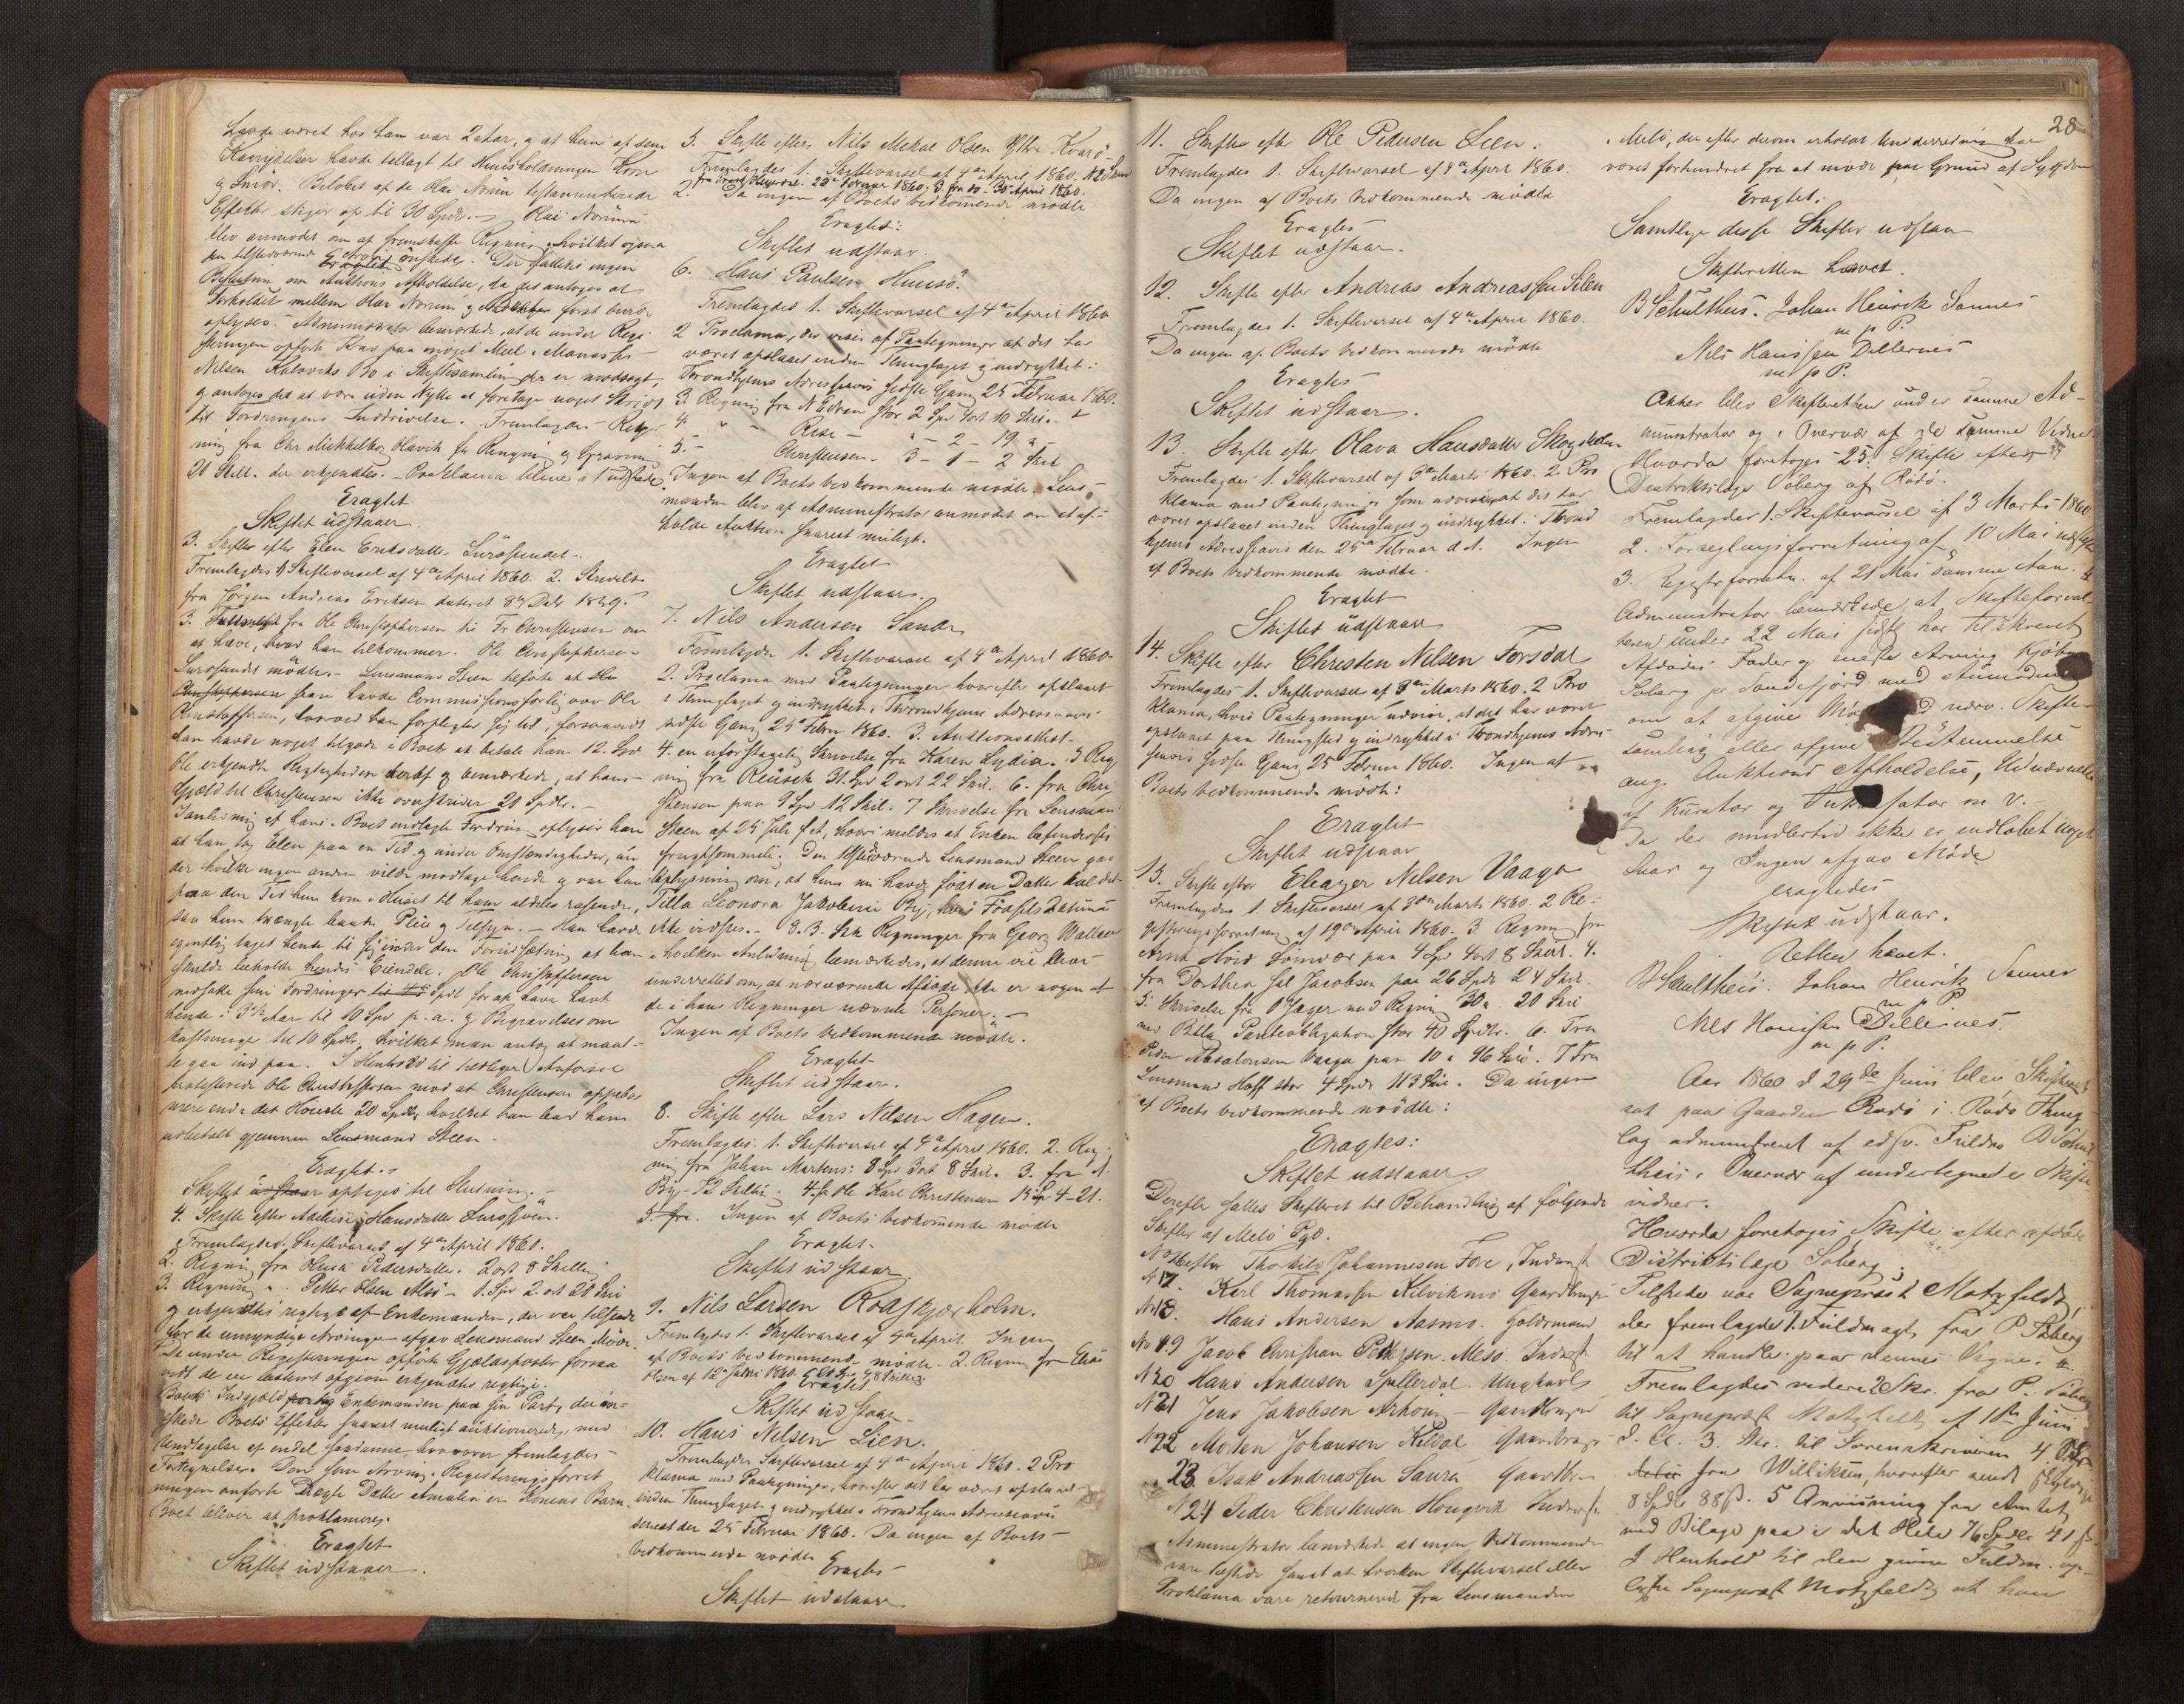 havde været hos ham var 2 Aar, og at hun af sem
Kaarydelser havde tillagt til Huusholdningen Korn
og Smör. Beløbet af de Olai Norum testamenterede
Effekter stiger op til 30 Spdlr. Olai Norum
blev anmodet om at fremskaffe Regning, hvilket ogsaa
den tilstedeværende ønskede. Der fattedes ingen
Beslutning om Auktions Afholdelse, da det antoges at
Forholdet mellem Olai Norum og först burde
oplyses. Administrator bemærkede, at de under Regi-
streringen opförte Krav paa noget Meel i Manasses
Nilsen Kalsviks Bo i Skiftesamling der er modsagt,
og antoges det at være uden Nytte at foretage noget Skridt
til Fordringens Inddrivelse. Fremlagdes Reg-
ning fra Chr Mikkelborg Olavik for Ringning og Gravning
20 Skill. der erkjendtes. Proklama bliver at udstæde.
Eragtet
Skiftet udstaaer.
3. Skifte efter Elen Eriksdatter Lurösundet.
Fremlagdes 1) Skiftevarsel af 4de April 1860. 2. Skrivelse
fra Jörgen Andreas Eriksen dateret 8de Debr 1859.
3. Fuldmagt fra Ole Christophersen til Fr Christensen om
at hæve, hvad ham tilkommer. Ole Christophersen
Lurösundet mödte. Lensmand Steen tilförte at
Christophersen havde Commissionsforlig over Ole
Christoffersen, hvorved han forpligter sig til, forsaavidt
han havde noget tilgode i Boet at betale ham 12. Spd
Ole erkjendte Rigtigheden deraf og bemærkede, at hans
Gjæld til Christensen ikke overskrider 20 Spdlr.
at han tog Elen paa en Tid og under Omstændigheder, un-
der hvilke ingen anden vilde modtage hende og var hun
paa den Tid hun kom i Huset til ham aldeles rasende,
saa hun trængte haardt Pleie og Tilsyn. Han havde
egentlig taget hende til sig under den Forudsætning at han
skulde beholde hendes Eiendele. Ole Christoffersen
nedsatte sin Fordringer Spdl for at have havt
hende i Aar til 10 Spd p. a. og Begravelsesom
kostninger til 10 Spdlr, hvilket man antog at maat-
te gaa ind paa. I Henhold til tredlagen Anförsel
protesterede Ole Christoffersen mod at Christensen oppebar
mere end det Höieste 20 Spdlr, hvilket han bad ham
udbetalt gjennem Lensmand Steen.
Eragtet.
Skiftet optoges til Slutning.
4. Skifte efter Hansdatter
Fremlagdes 1. Skiftevarsel af 4de April 1860.
2. Regning fra Olina Pedersdatter. 2 ort 8 Skilling
3. Regning Petter Olsen Alsö - 1. Spd 2 ort 20 Skil
og erkjendtes rigtigt af Enkemanden, der var tilstede
For de umyndige Arvinger afgav Lensmand Steen Möde.
De under Registreringen opförte Gjældsposter forsaa-
vidt de er bestemt opgivne erkjendtes rigtige.
Boets Indgjæld Enkemanden paa sin Part, der ön-
skede Boets Effekter snarest muligt auktionerede, med
Undtagelse af endel Gjenstande hvorover fremlagdes
Fortegnelse. Den som Arving i Registreringsforret-
ningen anförte Datter Amalia er Konens Barn.
Boet bliver at proklameres.
Eragtet
Skiftet udstaaer.
5. Skifte efter Nils Mikal Olsen Ytre Kvarö
Fremlagdes 1. Skiftevarsel af 4de April 1860.
2. Da ingen af Boets Vedkommende mödte
Eragtet:
Skiftet udstaaer.
6. Hans Paulsen Huusö.
Fremlagdes 1. Skiftevarsel af 4de April 1860
2 Proclama, der viser af Paategninger at det har
været opslaaet inden Thinglaget og indrykket i
Trondhjems Adresseavis sidste Gang 25 Februar 1860.
3 Regning fra N Edvan stor 2 Spd 4 ort 10 Skil.
4. " - Rese - " - 2 - 19 "
5. - Christensen - 3 - 1 - 2 Skil
Ingen af Boets Vedkommende mödte. Lens-
manden blev af Administrator anmodet om at af-
holde Auktion snarest muligt.
Eragtet
Skiftet udstaaer.
7. Nils Andersen Sandö
Fremlagdes 1. Skiftevarsel af 4de April 1860.
2. Proclama med Paategninger hvorefter opslaaet
i Thinglaget og indrykket i Throndhjems Adresseavis
sidste Gang 25de Febru 1860. 3. Auktionsattest.
4. en uforstaaelig Skrivelse fra Karen Lydia. 5 Reg
ning fra Reusch 31. Spd 2 ort 22 Skil. 6. fra Chri-
stensen paa 9 Spd 12 Skil. 7 Skrivelse fra Lensmand
Steen af 25 Juli f.A., hvori meldes at Enken befandtes
frugtsommelig. Den tilstedeværende Lensmand Steen gav
Oplysning om, at hun nu havde födt en Datter kaldet
Tilla Leonora Jakobine Brj, hvis Födsels Datum
ikke vidstes. 8. 3. Stk Regninger fra Georg Wallace
i hvilken Anledning bemærkedes, at denne vil blive
underrettet om, at nærværende Afdöde ikke er nogen af
de i hans Regninger nævnte Personer.
Ingen af Boets Vedkommende mödte.
Eragtet
Skiftet udstaaer.
8. Skifte efter Lars Nilsen Hagen.
Fremlagdes 1. Skiftevarsel af 4de April 1860. 2. Reg-
ning fra Johan Martens: 8 Spd 3 ort 8 Skil. 3. fra A.
Brj - 72 Skilling. 4. fr Ole Karl Christensen 15 Sp 4-21.
Ingen af Boets Vedkommende mödte
Eragtet.
Skiftet udstaaer.
9. Nils Larsen Kraaskjærholm.
Fremlagdes 1. Skiftevarsel af 4de April. Ingen
af Boets Vedkommende mödte. 2. Regning fra
Olsen af 12te Juni 1860.
Eragtet.
Skiftet udstaaer.
10. Hans Nilsen Lien.
Fremlagdes Skiftevarsel af 4de April 1860. 2 Pro
klama med Paategninger, hvorefter det har været opslaaet
inden Thinglaget og indrykket i Trondhjems Adresseavis
senest den 25 Februar 1860. Da ingen af Boets
Vedkommende mödte
Eragtes
Skiftet udstaaer
28
11. Skifte efter Ole Pedersen Leen.
Fremlagdes 1. Skiftevarsel af 4de April 1860.
Da ingen af Boets Vedkommende mödte
Eragtes
Skiftet udstaaer.
12. Skifte efter Andreas Andreassen Silen
Fremlagdes 1. Skiftevarsel af 4de April 1860.
Da ingen af Boets Vedkommende mödte
Eragtes
Skiftet udstaaer.
13. Skifte efter Olava Hansdatter Skogsletten
Fremlagdes 1. Skiftevarsel af 3de Marts 1860. 2. Pro
klama med Paategninger som udviser at det har
været opslaaet inden Thinglaget og indrykket i Trond
hjems Adresseavis den 25de Februar d.A. Ingen
af Boets Vedkommende mödte.
Eragtet
Skiftet udstaaer
14. Skifte efter Christen Nilsen Forsdal
Fremlagdes 1. Skiftevarsel af 3die Marts 1860. 2 Pro
klama, hvis Paategninger udviser, at det har været
opslaaet paa Thingsted og indrykket i Trondhjems Adres-
seavis sidste Gang 25 Februar 1860. Ingen af
Boets Vedkommende mödte:
Eragtet
Skiftet udstaaer
15. Skifte efter Eleazer Nilsen Vaaga
Fremlagdes 1. Skiftevarsel af 3die Marts 1860. 2 Re-
gistreringsforretning af 19de April 1860. 3. Regning fra
Arnt Höid Sörnvær paa 4 Spd 4 ort 8 Skil. 4.
fra Dorthea Jakobsen paa 26 Spdr 24 Skil.
5. Skrivelse fra O Jæger med Regning 30 a. 20 Skil
med Bilag Panteobligation stor 40 Spdlr. 6. Fra
Peder Absalonsen Vaaga paa 10 a 96 Skil. 7 Fra
Lensmand Hoff stor 4 Spdr 113 Skil. Da ingen
af Boets Vedkommende mödte:
Eragtes:
Skiftet udstaaer
Derefter sattes Skifteret til Behandling af følgende
Skifter af Melö Pgd.
No 16 efter Thorkild Johannesen Fore, Inderst
N 17. Karl Thomassen Kilvikmo Gaardbruger
No 18. Hans Andersen Aasmo. Gaardmand
No 19 Jacob Christian Pettersen Mesö Inderst
N 20 Hans Andersen Spillerdal. Ungkarl
N 21 Jens Jakobsen Arhoug - Gaardbruger
No 22 Morten Johansen Kildal Gaardbruger
23 Isak Andreassen Saura Gaardbr-
N 24 Peder Christensen Hougvik Inderst
Administrator bemærkede at ingen Vedkommende
vare tilstede samt at hverken Skiftevarsel eller
Proklama vare retournerede fra Lensmanden
i Melö, der efter derom erholdt Underretning har
været forhindret fra at möde paa Grund af Sygdom
Eragtet.
Samtlige disse Skifter udstaa
Skifteretten hævet.
B Schultheis. Johan Henrik Sannes
m p P.
Nils Hanssen Dillernes
m p P.
Atter blev Skifteretten under samme Ad-
ministrator og i Overvær af de samme Vidne.
Hvorda foretoges 25. Skifte efter
Distriktslæge Söberg af Rödö.
Fremlagdes 1. Skiftevarsel af 3 Marts 1860
2. Forseglingsforretning af 10 Mai
3. Registrforretn. af 21 Mai samme Aar.
Administrator bemærkede, at Skifteforval-
teren under 22 Mai sidst har tilskrevet
Afdödes Fader og eneste Arving Kjöbm
Söberg pr Sandefjord med Anmodning
om at afgive Möde ved nærv. Skifte-
samling eller afgive Bestemmelse
ang. Auktions Afholdelse, Udnævnelse
af Kurator og m V.
Da der imidlertid ikke er indløbet noget
Svar og Ingen afgav Möde
eragtedes
Skiftet udstaar.
Retten hævet.
B Schultheis. Johan Henrik Sannes
m p P
Nils Hanssen Dillernes.
m p P.
Aar 1860 d 29de Juni blev Skifteret
sat paa Gaarden Rödö i Rödö Thing
lag administreret af edsv. Fuldm B Schul
theis i Overvær af undertegnede Skifte
vidner.
Hvorda foretoges Skifte efter afdöde
Distriktslæge Söberg.
Tilstede var Sognepræst Motzfeldt,
der fremlagde 1. Fuldmagt fra P Söberg
til at handle paa dennes Vegne.
Fremlagdes videre 2 Skr. fra P. Söberg
til Sognepræst Motzfeldt af 1ste Juni
d. A. 3. Skr. til Sorenskriveren 4
fra Williksen, hvorefter sendt
8 Spdlr 88 ß. 5 Anviisning fra Amtet
med Bilage paa i det Hele 76 Spdlr 41 ß
I Henhold til den givne Fuldm. op-
lyste Sognepræst Motzfeldt at han